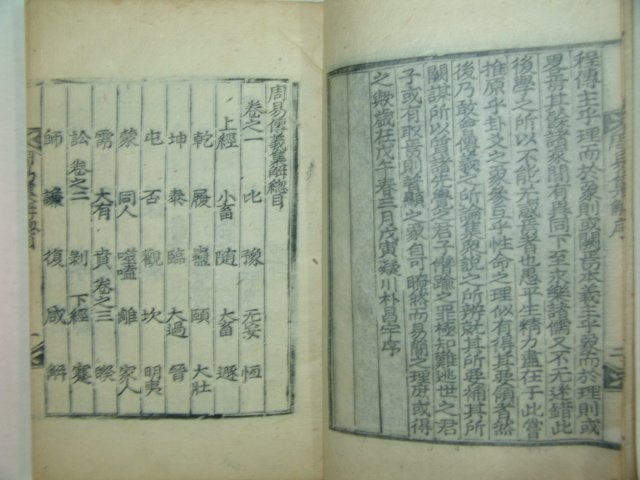 程傳主乎理而於象則或闕焉本義主乎象而於理則或
畧焉其餘諸家間有異同下至永樂諸儒又不无迷錯此
後學之所以不能无感焉者也愚平生精力盡在于此嘗
推原乎卦爻之象參互乎性命之理似有得其要領者然
後乃敢會傳義之所論集衆說之所辨就其所要補其所
闕謀所以質諸先覺之君子僭踰之罪極知難逃世之君
子或有取焉則普顯之象自可瞭然而易簡之理庶或得
之歟歲在戊午春三月戊寅凝川朴昌宇序
周易傳義集解總目
卷之一 比 豫 无妄 恒
上經 小畜 隨 大畜 遯
乾 履 蠱 頤 大壯
坤 泰 臨 大過 晉
屯 否 觀 坎 明夷
蒙 同人 噬嗑 離 家人
需 大有 賁 卷之三 睽
訟 卷之二 剝 下經 蹇
師 謙 復 咸 解